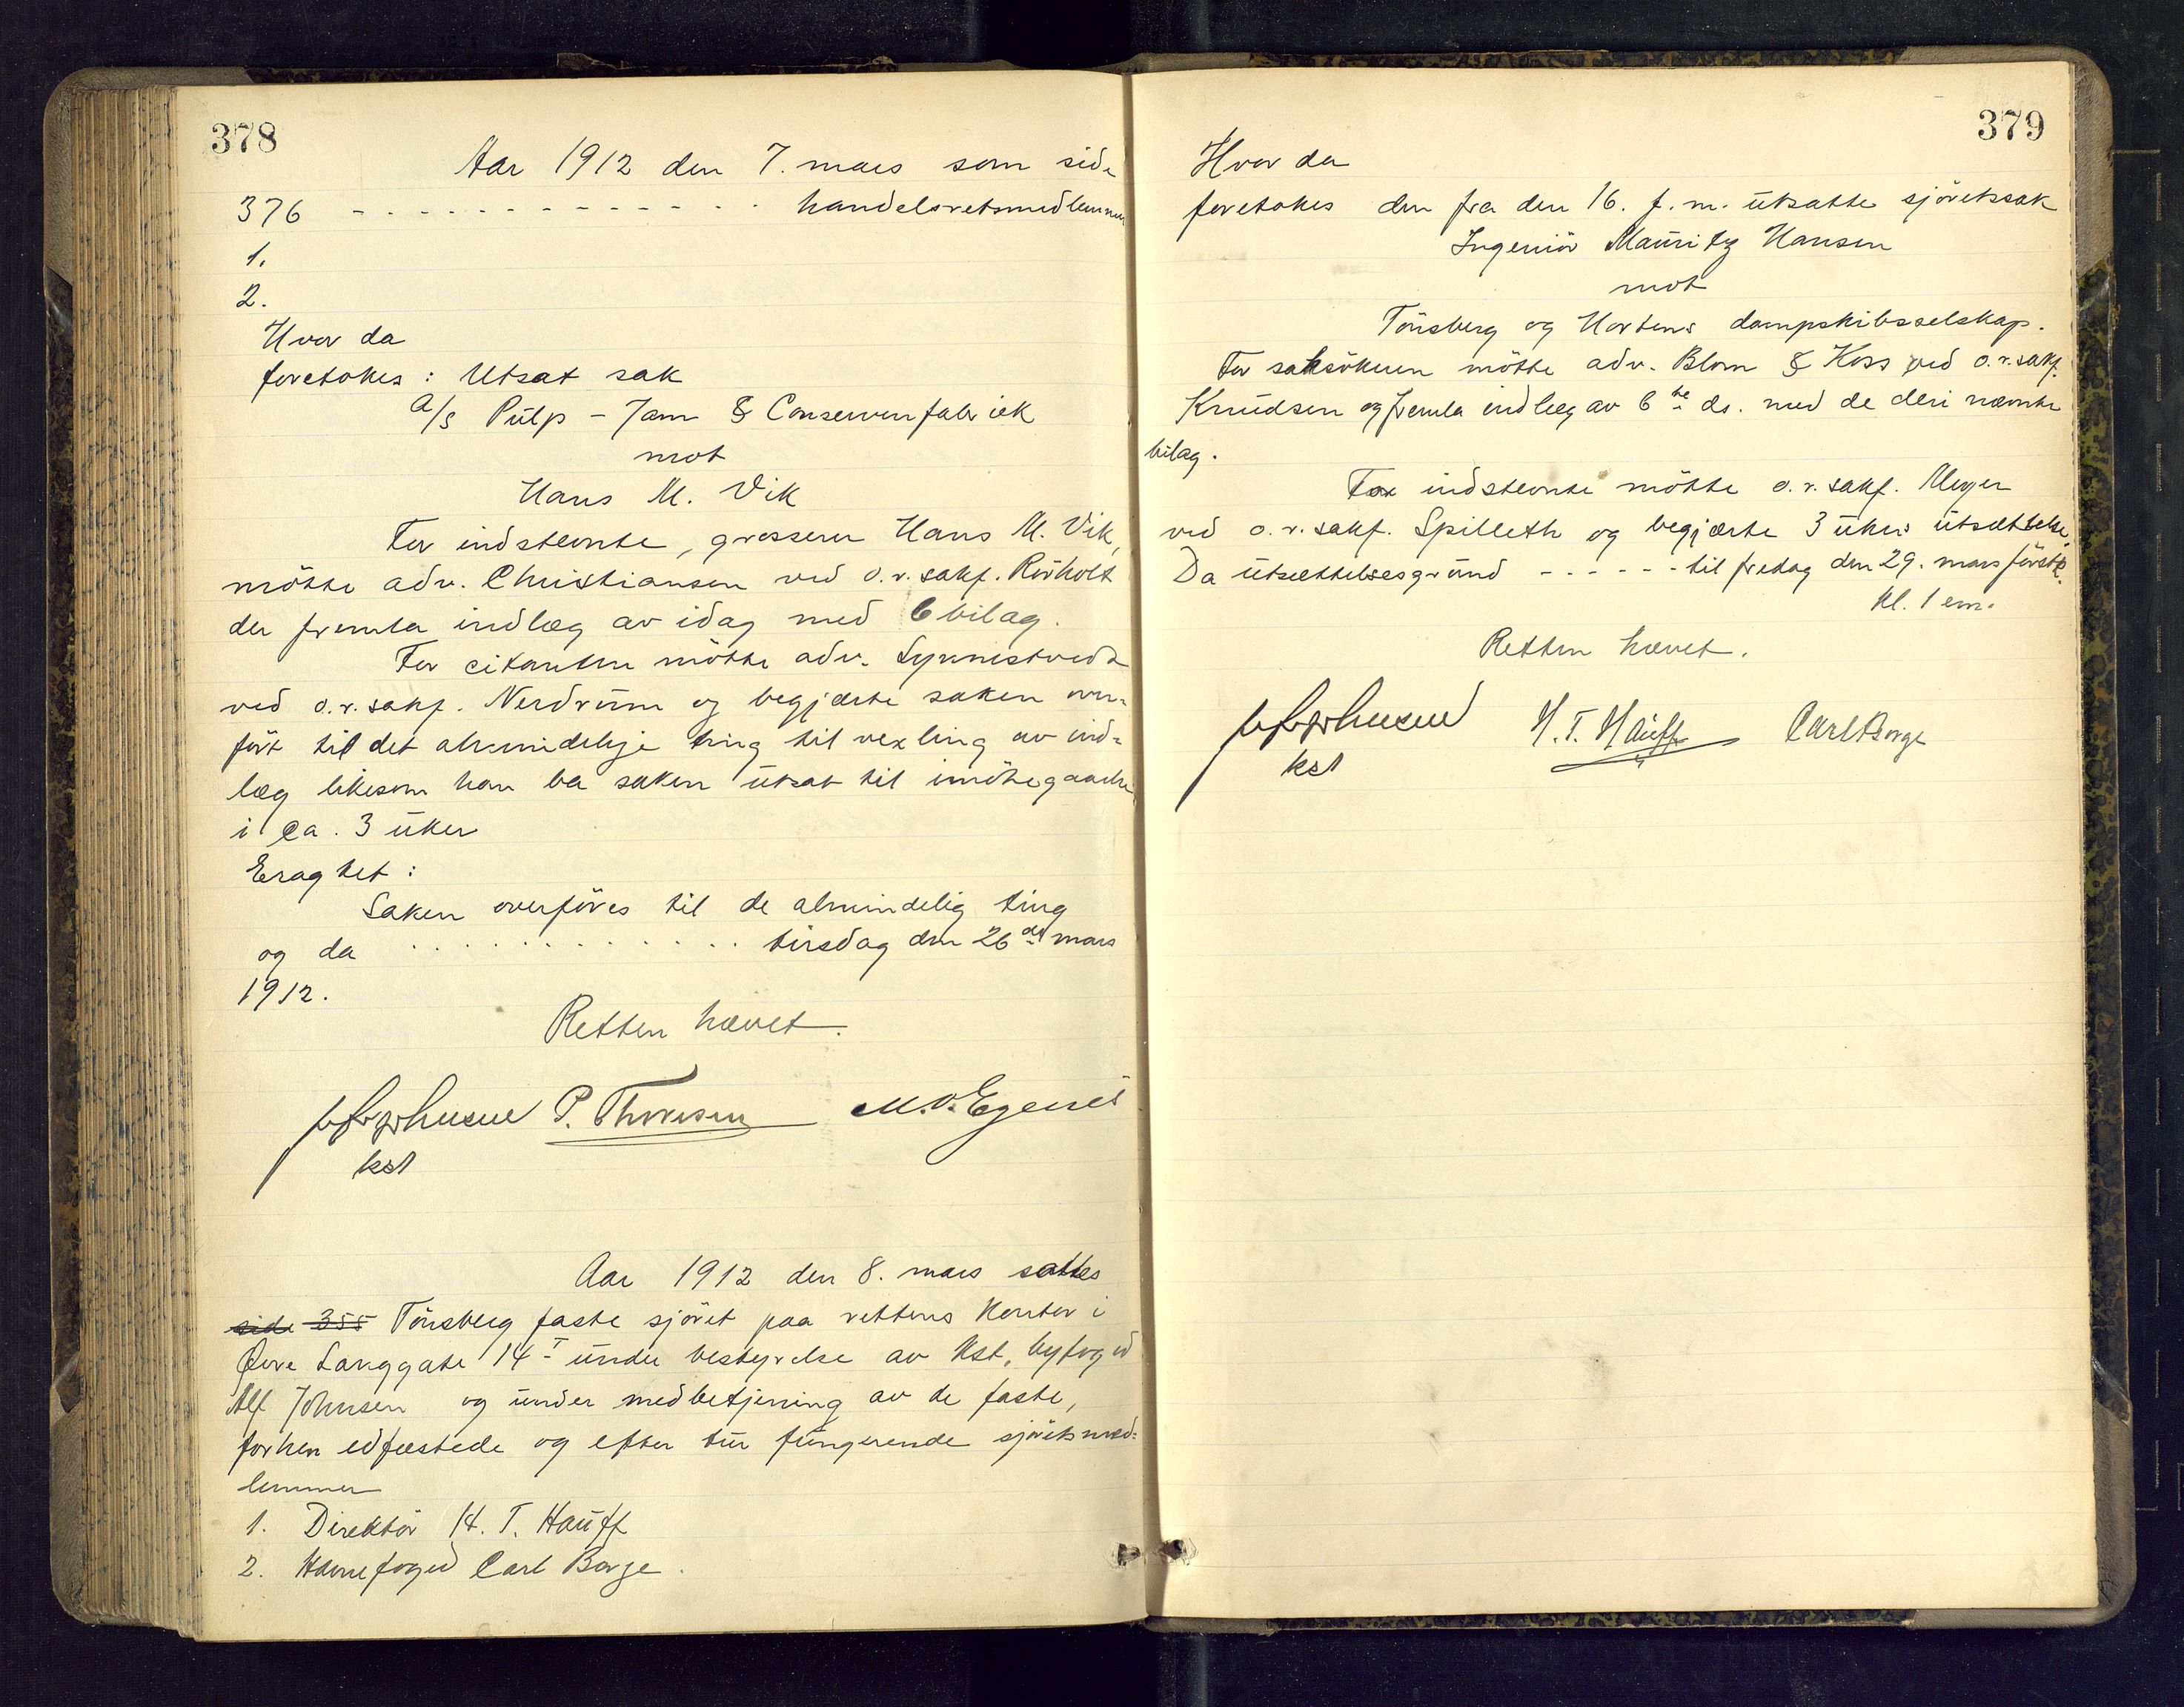 378
Aar 1912 den 7. mars som side
376 - - - - - - - - - - - - - handelsretsmedlemmer
1.
2.
Hvor da
foretokes : Utsat sak
A/S Pulp - Jam & Conservenfabriek
mot
Hans M. Vik
For indstevnte, grosserer Hans M. Vik,
møtte adv. Christiansen ved o.r.sakf. Rörholt
der fremla indlæg av idag med 6 bilag.
For citanten møtte adv. Synnestvedt
ved o.r.sakf. Nerdrum og begjærte saken over-
ført til det almindelige ting til vexling av ind-
læg likesom han ba saken utsat til imøtegaaelse
i ca. 3 uker
Eragtet :
Saken overføres til de almindelig ting
og da . . . . . . . . . . . . . tirsdag den 26de mars
1912.
Retten hævet.
P. Thoresen M. O. Egenes
kst
Aar 1912 den 8. mars sattes
side 355 Tönsberg faste sjøret paa rettens kontor i
Øvre Langgate 14 I under bestyrelse av kst. byfoged
Alf Johnsen og under medbetjening av de faste,
forhen edfæstede og efter tur fungerende sjøretsmed-
lemmer
1. Direktør H. T. Hauff
2. Havnefoged Carl Borge.
379
Hvor da
foretokes den fra den 16. f.m. utsatte sjøretssak
Ingeniør Mauritz Hansen
mot
Tönsberg og Hortens dampskibsselskap.
For saksøkeren møtte adv. Blom & Koss ved o.r.sakf.
Knudsen og fremla indlæg av 6te ds. med de deri nævnte
bilag.
For indstevnte møtte o.r.sakf. Meyer
ved o.r.sakf. Spilleth og begjærte 3 ukers utsættelse.
Da utsættelsesgrund - - - - - - til fredag den 29. mars førstk.
kl. 1 em.
Retten hævet.
H. T. Hauff Carl Borge
kst